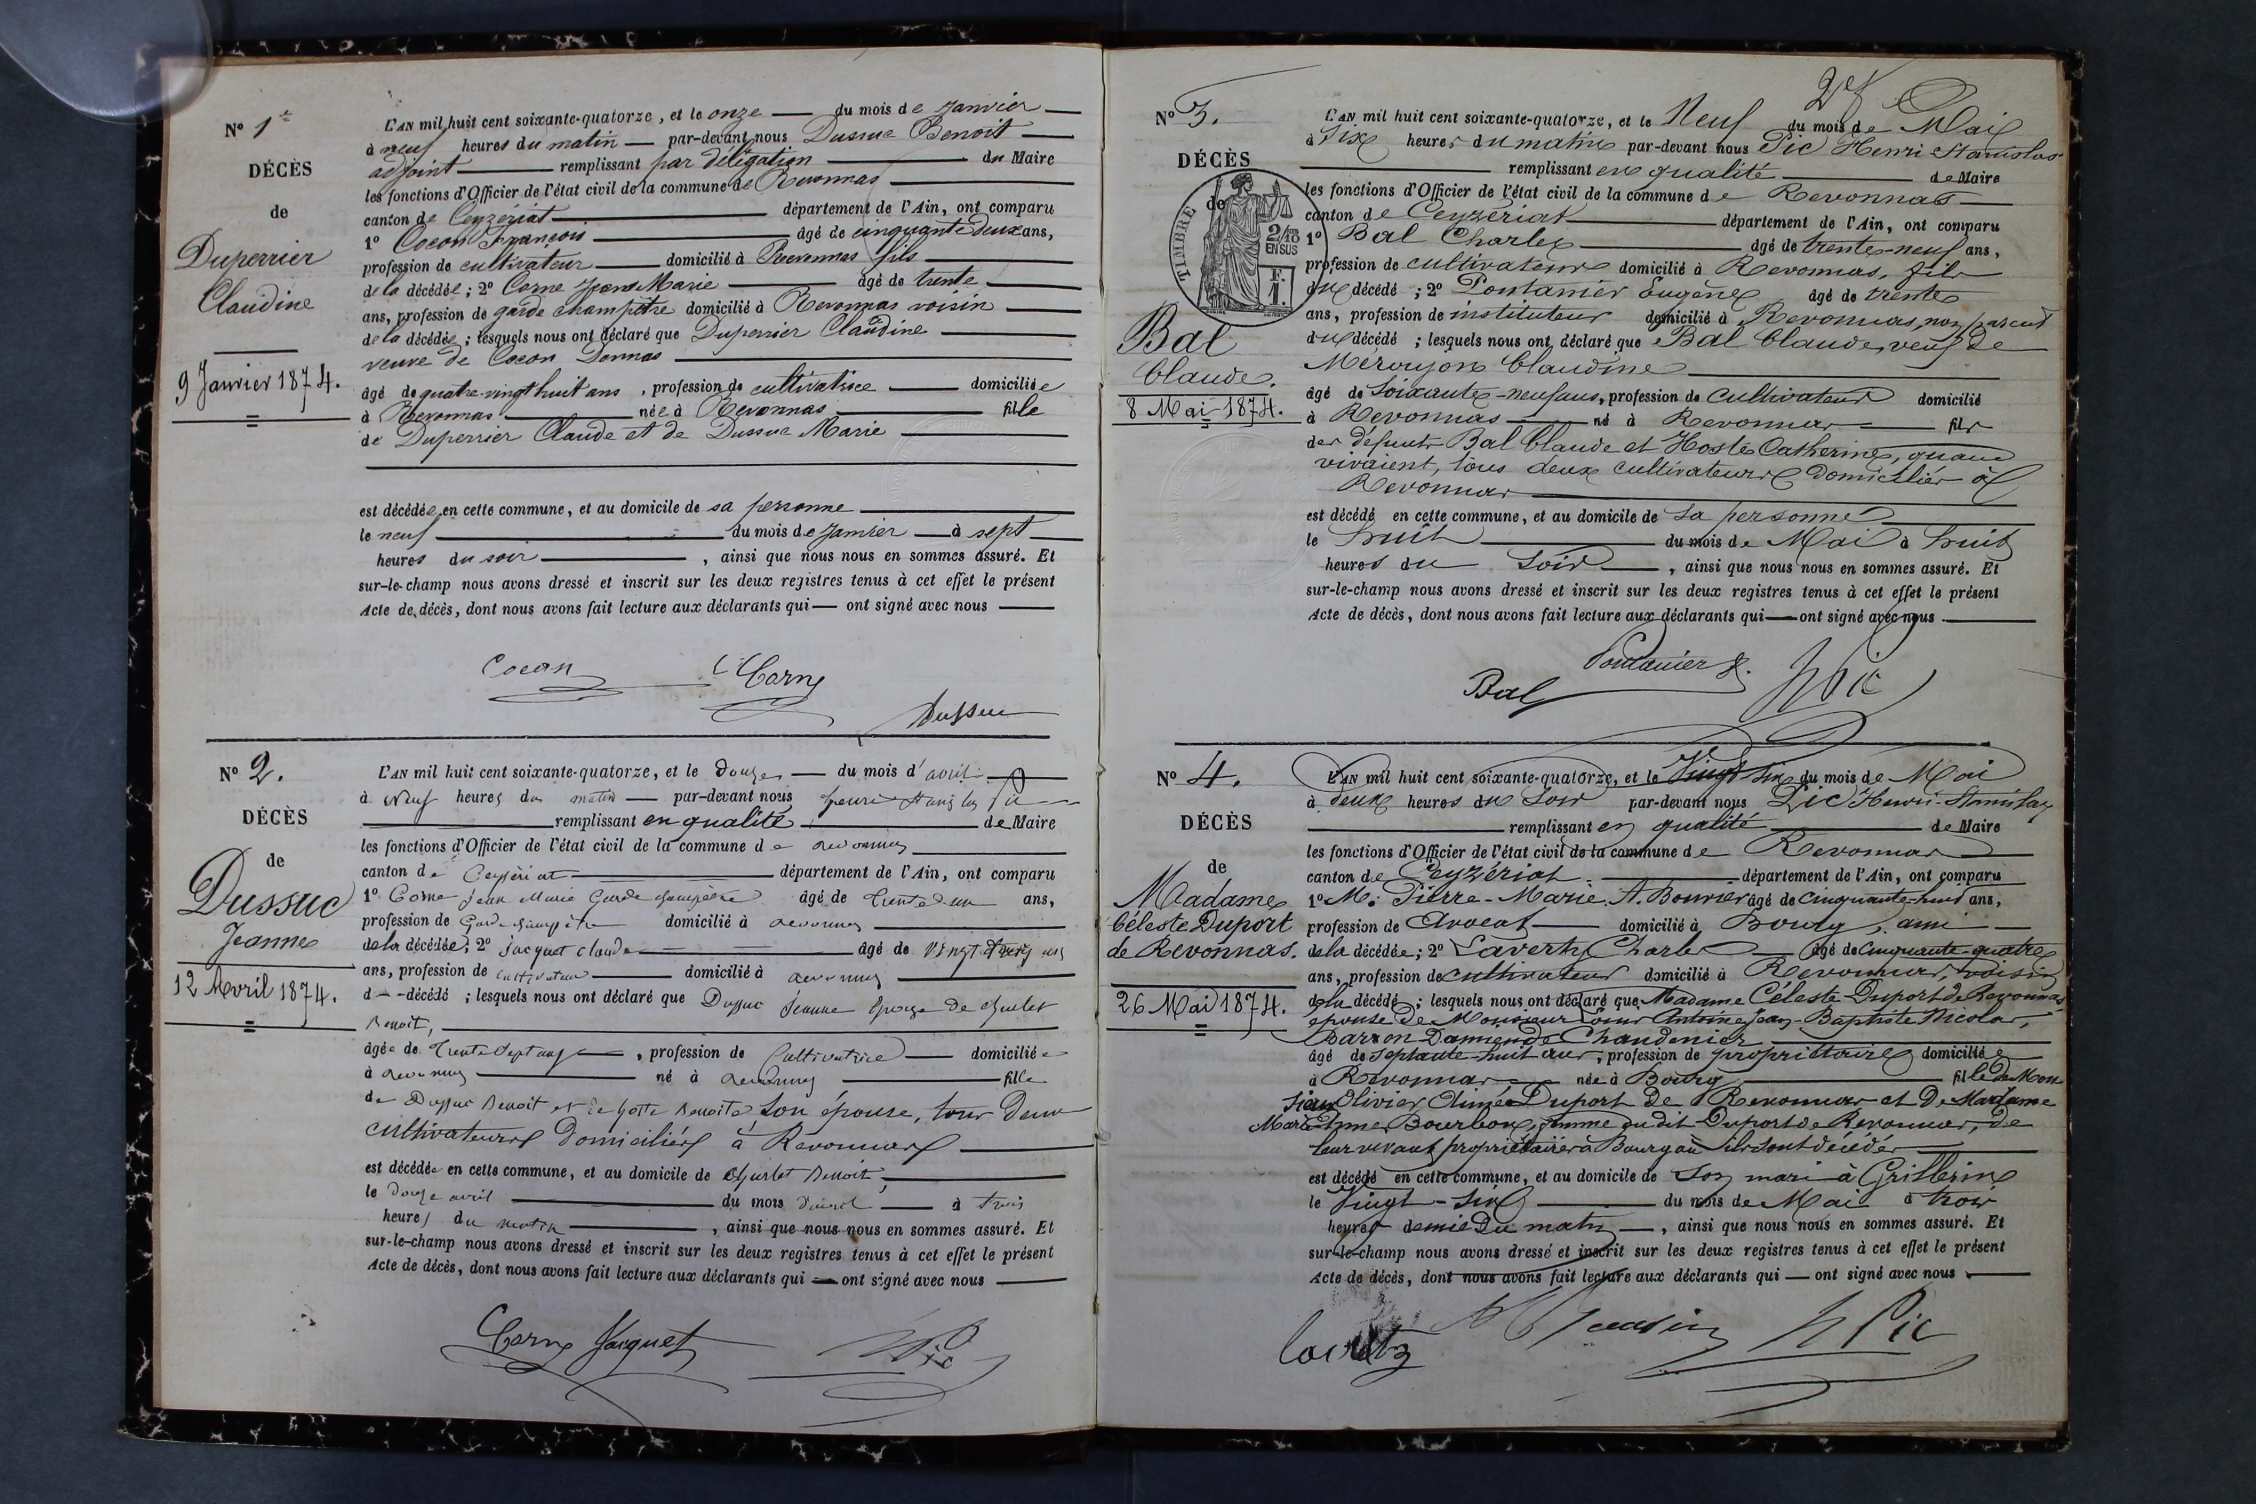 N° 1er
DÉCÈS
de
Duperrier
Claudine
9 Janvier 1874.
L'AN mil huit cent soixante-quatorze, et le onze du mois de Janvier
à neuf heures du matin par-devant nous Dussuc Benoit
adjoint remplissant par délégation du Maire
les fonctions d'Officier de l'état civil de la commune de Revonnas
canton de Ceyzériat département de l'Ain, ont comparu
1° Cocon François âgé de cinquante deux ans,
profession de cultivateur domicilié à Revonnas fils
de la décédée; 2° Corne Jean Marie âgé de trente
ans, profession de garde champêtre domicilié à Revonnas voisin
de la décédée; lesquels nous ont déclaré que Duperrier Claudine
veuve de Cocon Donnas
âgé de quatre vingt huit ans, profession de cultivatrice domiciliée
à Revonnas née à Revonnas fille
de Duperrier Claude et de Dussuc Marie
est décédée en cette commune, et au domicile de sa personne
le neuf du mois de Janvier à sept
heures du soir, ainsi que nous nous en sommes assuré. Et
sur-le-champ nous avons dressé et inscrit sur les deux registres tenus à cet effet le présent
Acte de décès, dont nous avons fait lecture aux déclarants qui ont signé avec nous
Cocon Corne
Dussuc
N° 2.
DÉCÈS
de
Dussuc
Jeanne
12 Avril 1874.
L'AN mil huit cent soixante-quatorze, et le Douze du mois d'avril
à Neuf heures du matin par-devant nous henri stanislas Pic
remplissant en qualité de Maire
les fonctions d'Officier de l'état civil de la commune de revonnas
canton de Ceyzériat département de l'Ain, ont comparu
1° Corne Jean Marie Garde champêtre âgé de Trente un ans,
profession de Garde champêtre domicilié à revonnas
de la décédée; 2° Jacquet claude âgé de vingt ans
ans, profession de cultivateur domicilié à revonnas
d décédé; lesquels nous ont déclaré que Dussuc Jeanne épouse de
Benoit,
âgée de Trente sept ans, profession de Cultivatrice domiciliée
à revonnas né à revonnas fille
de Dussuc Benoit et de hoste Benoite son épouse, tous deux
cultivateurs domiciliés à Revonnas
est décédée en cette commune, et au domicile de Benoit,
le Douze avril du mois d'avril à trois
heures du matin, ainsi que nous nous en sommes assuré. Et
sur-le-champ nous avons dressé et inscrit sur les deux registres tenus à cet effet le présent
Acte de décès, dont nous avons fait lecture aux déclarants qui ont signé avec nous
Corne Jacquet H Pic
2
N° 3.
DÉCÈS
de
TIMBRE
2/10 EN SUS
F. 1.
Bal
Claude.
8 Mai 1874.
L'AN mil huit cent soixante-quatorze, et le Neuf du mois de Mai
à Six heures du matin par-devant nous Pic Henri Stanislas
remplissant en qualité de Maire
les fonctions d'Officier de l'état civil de la commune de Revonnas
canton de Ceyzériat département de l'Ain, ont comparu
1° Bal Charles âgé de trente-neuf ans,
profession de cultivateur domicilié à Revonnas, fils
du décédé; 2° Pontanier Eugène âgé de trente
ans, profession de instituteur domicilié à Revonnas, non parent
du décédé; lesquels nous ont déclaré que Bal Claude, veuf de
Mérovjon Claudine
âgé de Soixante-neuf ans, profession de cultivateur domicilié
à Revonnas né à Revonnas fils
des défunts Bal Claude et Hoste Catherine, quand
vivaient, tous deux cultivateurs domiciliés à
Revonnas
est décédé en cette commune, et au domicile de sa personne
le huit du mois de Mai à huit
heures du soir, ainsi que nous nous en sommes assuré. Et
sur-le-champ nous avons dressé et inscrit sur les deux registres tenus à cet effet le présent
Acte de décès, dont nous avons fait lecture aux déclarants qui ont signé avec nous
Pontanier E.
Bal H Pic
N° 4.
DÉCÈS
de
Madame
Céleste Duport
de Revonnas.
26 Mai 1874.
L'AN mil huit cent soixante-quatorze, et le Vingt six du mois de Mai
à deux heures du Soir par-devant nous Pic Henri-Stanislas
remplissant en qualité de Maire
les fonctions d'Officier de l'état civil de la commune de Revonnas
canton de Ceyzériat département de l'Ain, ont comparu
1° M. Pierre-Marie A. Bouvier âgé de cinquante-huit ans,
profession de Avocat domicilié à Bourg, ami
de la décédée; 2° Charles âgé de cinquante-quatre
ans, profession de cultivateur domicilié à Revonnas, voisin
de la décédé; lesquels nous ont déclaré que Madame Céleste Duport de Revonnas
épouse de Monsieur Louis Antoine Jean-Baptiste Nicolas,
Barron Chandenier
âgé de septante-huit ans, profession de propriétaire domiciliée
à Revonnas née à Bourg fille de Mon
sieur Olivier Aimée Duport de Revonnas et de Madame
Marie Anne Bourbon, femme du dit Duport de Revonnas, de
leur vivant propriétaires à Bourg où ils sont décédés
est décédé en cette commune, et au domicile de son mari à Grillerin
le Vingt-six du mois de Mai à trois
heures demie du matin, ainsi que nous nous en sommes assuré. Et
sur-le-champ nous avons dressé et inscrit sur les deux registres tenus à cet effet le présent
Acte de décès, dont nous avons fait lecture aux déclarants qui ont signé avec nous
H Pic